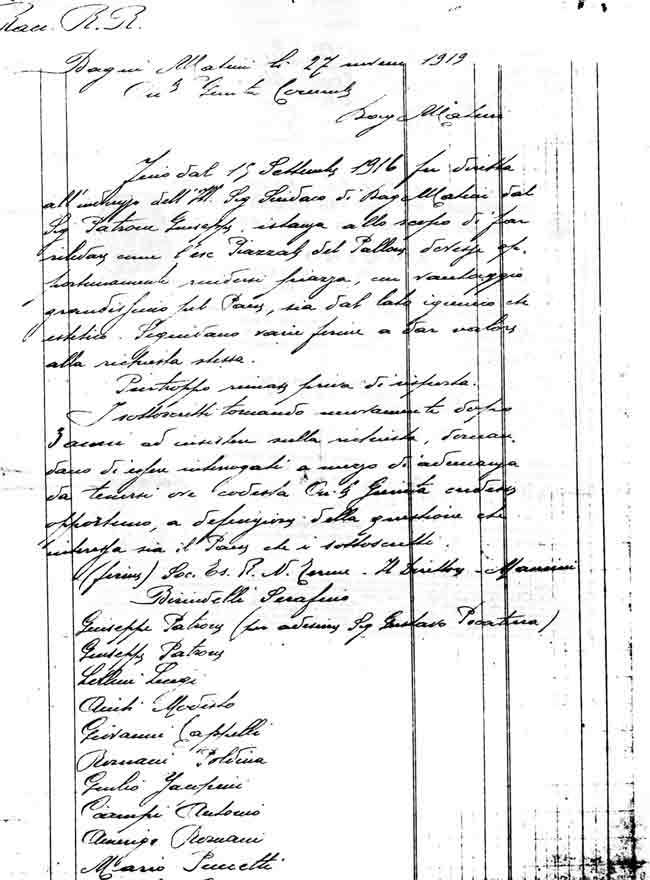 Racc. R.R.
Bagni Montecatini li 27 1919
On. Giunta
Bagni
Fino dal 15 Settembre 1916 fu diretta
all'indirizzo dell'Ill. Sig Sindaco di Bag dal
Sig Patrone Giuseppe istanza allo scopo di far
come l'ex Piazzale del Pallone dovesse op-
portunamente rendersi piazza, con vantaggio
grandissimo pel Paese, sia dal lato igienico che
estetico. Seguivano varie firme a dar valore
alla richiesta stessa.
Purtroppo rimase priva di risposta.
I sottoscritti tornando nuovamente dopo
3 anni ad insistere sulla richiesta, doman-
dano di esser interrogati a mezzo di adunanza
da tenersi ove codesta On. Giunta credesse
opportuno, a definizione della questione che
interessa sia il Paese che i sottoscritti.
(firme) Soc. Es. R. N. Terme - Il Direttore -
Birindelli Serafino
Giuseppe Patrone (per adesione Sig Gustavo Pocaterra)
Giuseppe Patrone
Lellini Luigi
Modesto
Giovanni Cappelli
Romani Poldina
Giulio Jacopini
Ciampi Antonio
Amerigo Romani
Mario Puccetti